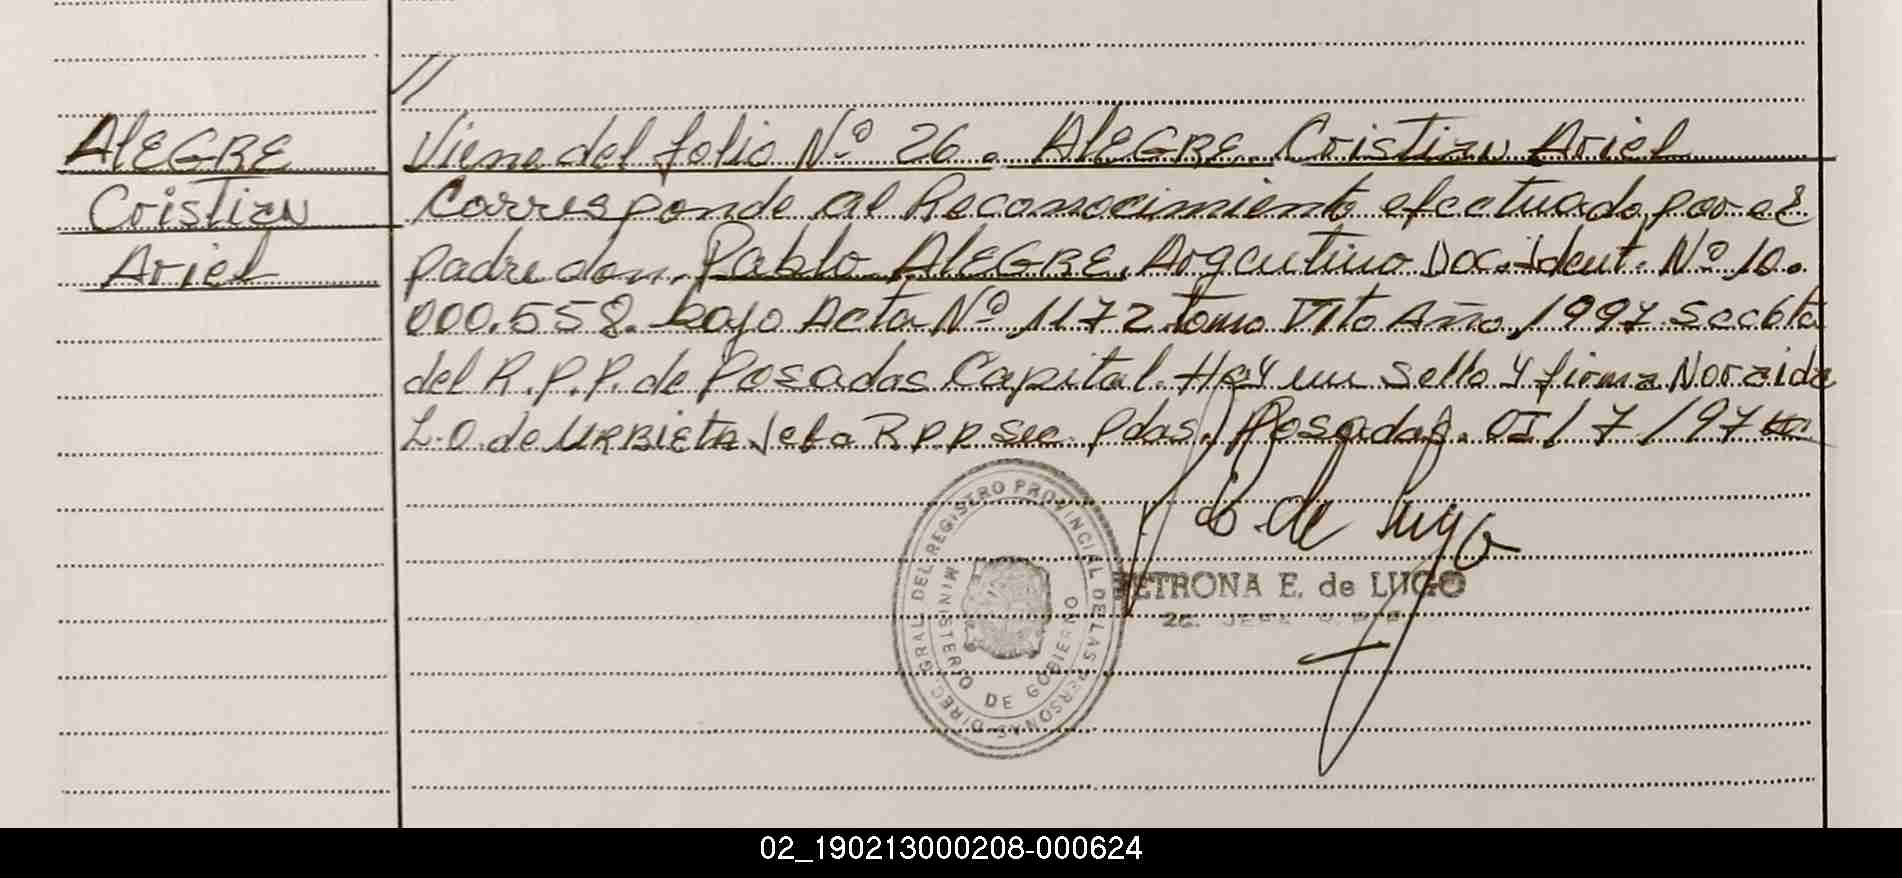 //
AlEGRE
Cristian
Ariel
Viene del folio Nº 26. AlEGRE Cristian Ariel
Corresponde al Reconocimiento efectuado por el
padre don Pablo AlEGRE, Argentino Doc. Ident. Nº 10.
000.558. bajo Acta Nº 1172 tomo Año 1997 Secc 6ta
del R.P.P. de Posadas Capital. Hay un sello y firma Noraida
L.O. de URBIETA Jefa R P P Sec. Pdas. Posadas. 01/7/97
E. de Lugo
PETRONA E. de LUGO
DIREC. GRAL. DEL REGISTRO PROVINCIAL DE LAS PERSONAS
MINISTERIO DE GOBIERNO
02_190213000208-000624